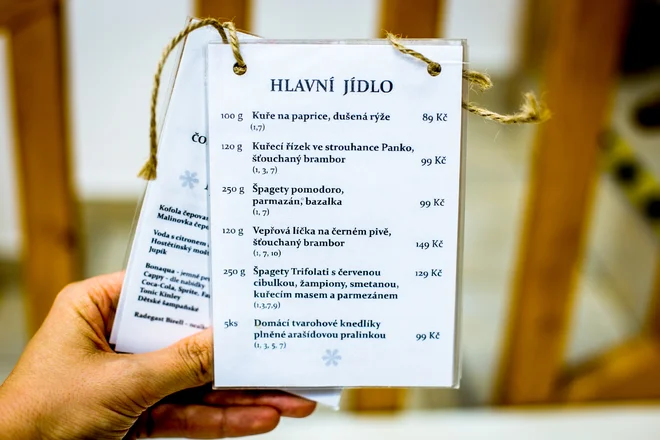 HLAVNÍ JÍDLO
100 g Kuře na paprice, dušená rýže 89 Kč
(1,7)
120 g Kuřecí řízek ve strouhance Panko,
šťouchaný brambor 99 Kč
(1, 3, 7)
250 g Špagety pomodoro,
parmazán, bazalka 99 Kč
(1, 7)
120 g Vepřová líčka na černém pivě,
šťouchaný brambor 149 Kč
(1, 7, 10)
250 g Špagety Trifolati s červenou 129 Kč
cibulkou, žampiony, smetanou,
kuřecím masem a parmezánem
(1,3,7,9)
5ks Domácí tvarohové knedlíky
plněné arašídovou pralinkou 99 Kč
(1, 3, 5, 7)
Kofola čepova
Malinovka čepo
Voda s citronem
Hostětínský mošt
Jupík
Bonaqua - jemně pe
Cappy - dle nabídky
Coca-Cola, Sprite, Fa
Tonic Kinley
Dětské šampaňské
Radegast Birell - nealk